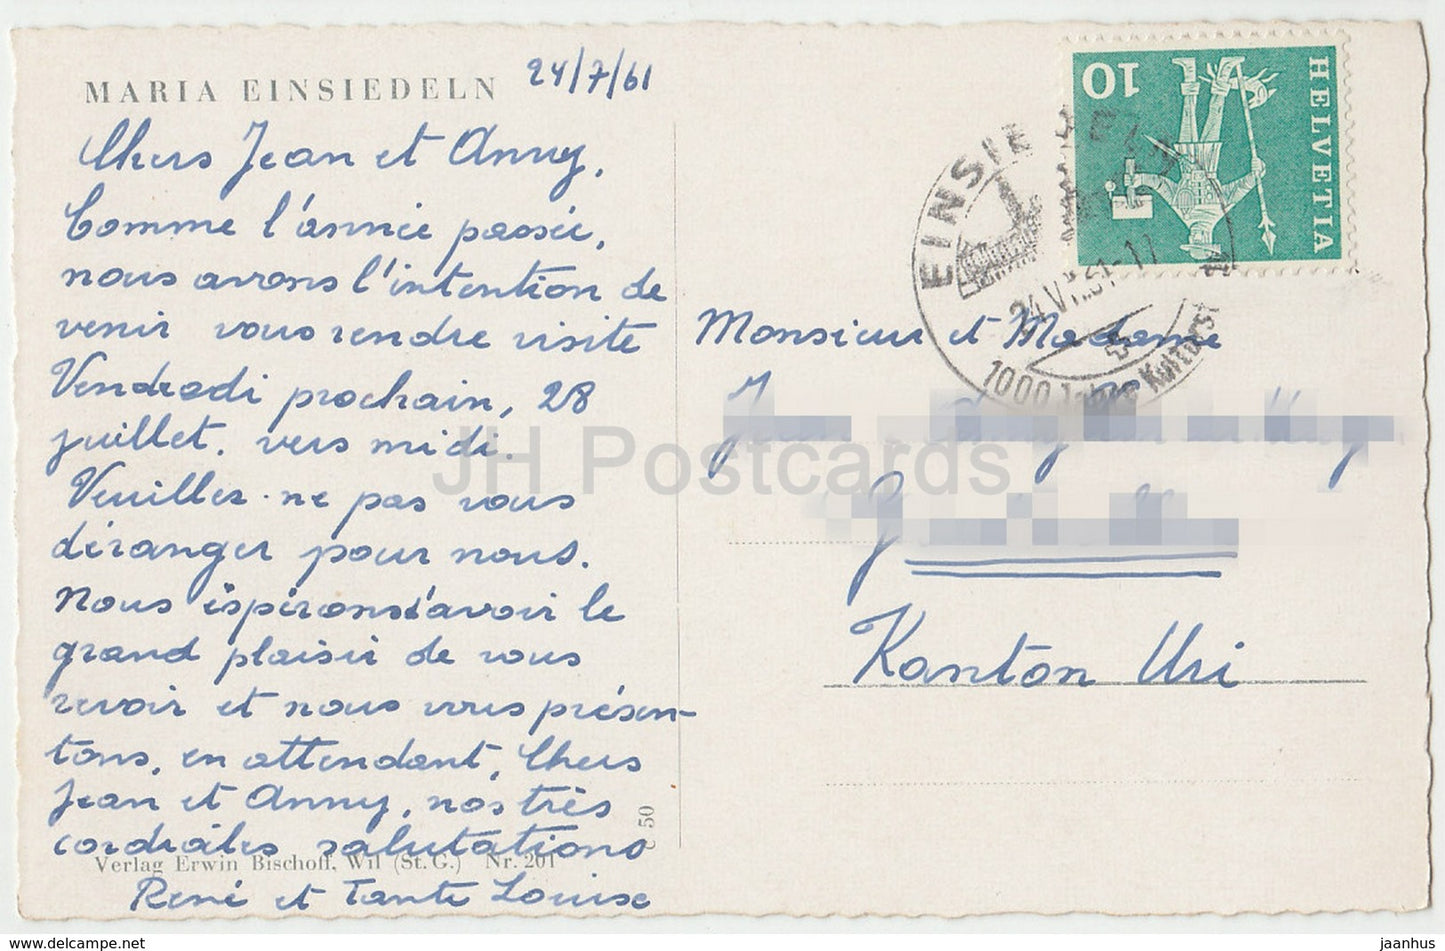 MARIA EINSIEDELN
24/7/61
Chers Jean et Anny,
Comme l'année passée,
nous avons l'intention de
venir vous rendre visite
Vendredi prochain, 28
juillet, vers midi.
Veuillez ne pas vous
déranger pour nous.
Nous espérons d'avoir le
grand plaisir de vous
revoir et nous vous présen-
tons, en attendant, Chers
Jean et Anny, nos très
cordiales salutations
René et Tante Louise
Verlag Erwin Bischoff, Wil (St. G.) Nr. 201
50
HELVETIA
10
EINSIEDELN
24.VII.61-11
1000 Jahre Kultur
Monsieur et Madame
Kanton Uri
JH Postcards
www.delcampe.net
jaanhus